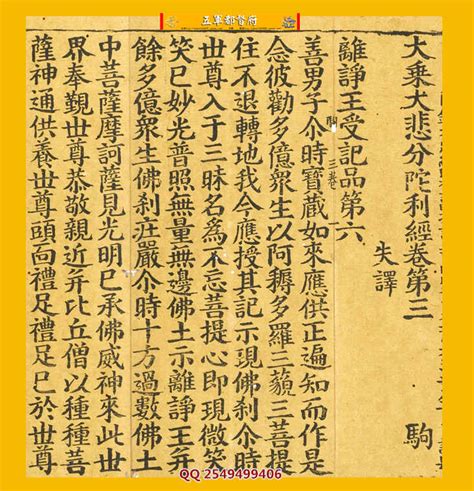 五軍都督府
大乘大悲分陀利經卷第三 駒
失譯
離諍王受記品第六
駒 三卷
善男子尒時寶藏如來應供正遍知而作是
念彼勸多億衆生以阿耨多羅三藐三菩提
住不退轉地我今應授其記示現佛刹尒時
世尊入于三昧名爲不忘菩提心即現微笑
笑已妙光普照無量無邊佛土示離諍王并
餘多億衆生佛刹莊嚴尒時十方過數佛土
中菩薩摩訶薩見光明已承佛威神來此世
界奉覲世尊恭敬親近并比丘僧以種種菩
薩神通供養世尊頭面禮足禮足已於世尊
QQ 2549499406